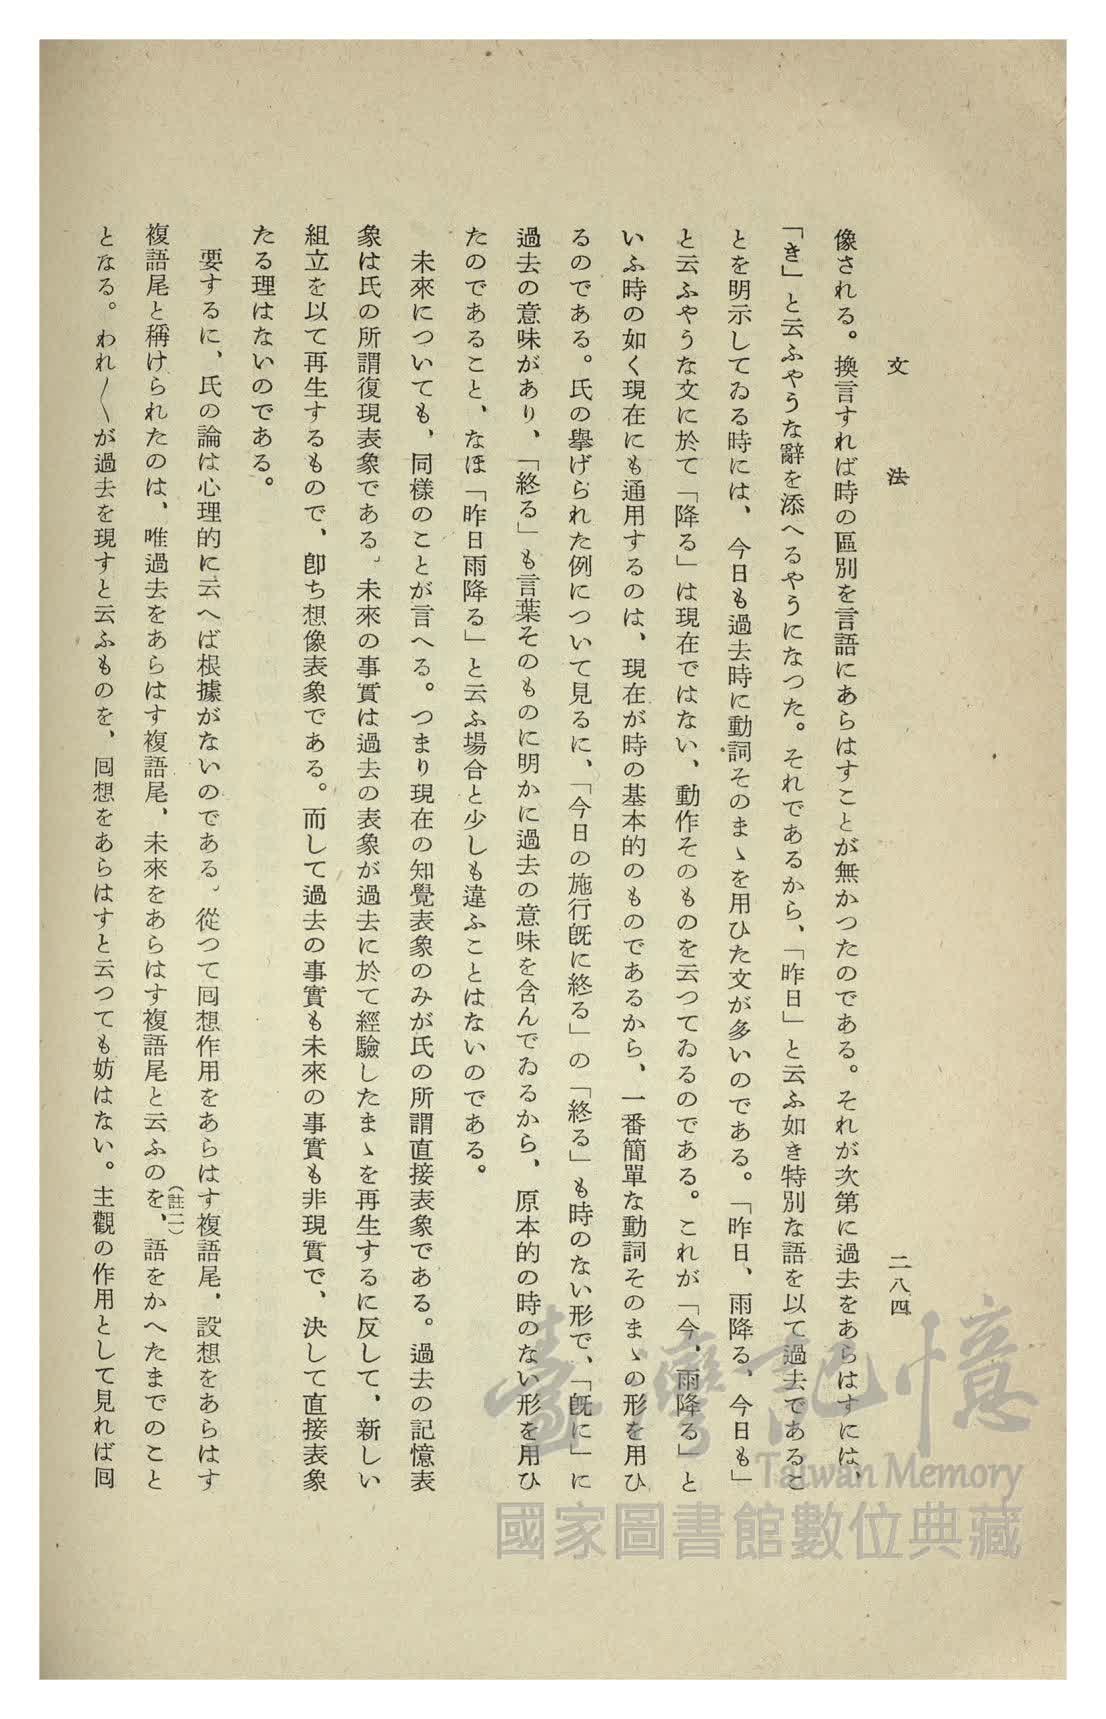 文法
二八四
像される。換言すれば時の區別を言語にあらはすことが無かつたのである。それが次第に過去をあらはすには、
「き」と云ふやうな辭を添へるやうになつた。それであるから、「昨日」と云ふ如き特別な語を以て過去であるこ
とを明示してゐる時には、今日も過去時に動詞そのまゝを用ひた文が多いのである。「昨日、雨降る、今日も」
と云ふやうな文に於て「降る」は現在ではない、動作そのものを云つてゐるのである。これが「今、雨降る」と
いふ時の如く現在にも通用するのは、現在が時の基本的のものであるから、一番簡單な動詞そのまゝの形を用ひ
るのである。氏の擧げられた例について見るに、「今日の施行旣に終る」の「終る」も時のない形で、「旣に」に
過去の意味があり、「終る」も言葉そのものに明かに過去の意味を含んでゐるから、原本的の時のない形を用ひ
たのであること、なほ「昨日雨降る」と云ふ場合と少しも違ふことはないのである。
未來についても、同樣のことが言へる。つまり現在の知覺表象のみが氏の所謂直接表象である。過去の記憶表
象は氏の所謂復現表象である。未來の事實は過去の表象が過去に於て經驗したまゝを再生するに反して、新しい
組立を以て再生するもので、卽ち想像表象である。而して過去の事實も未來の事實も非現實で、決して直接表象
たる理はないのである。
要するに、氏の論は心理的に云へば根據がないのである。從つて囘想作用をあらはす複語尾、設想をあらはす
複語尾と稱けられたのは、唯過去をあらはす複語尾、未來をあらはす複語尾と云ふのを、(註二)語をかへたまでのこと
となる。われ〳〵が過去を現すと云ふものを、囘想をあらはすと云つても妨はない。主觀の作用として見れば囘
臺灣記憶
Taiwan Memory
國家圖書館數位典藏